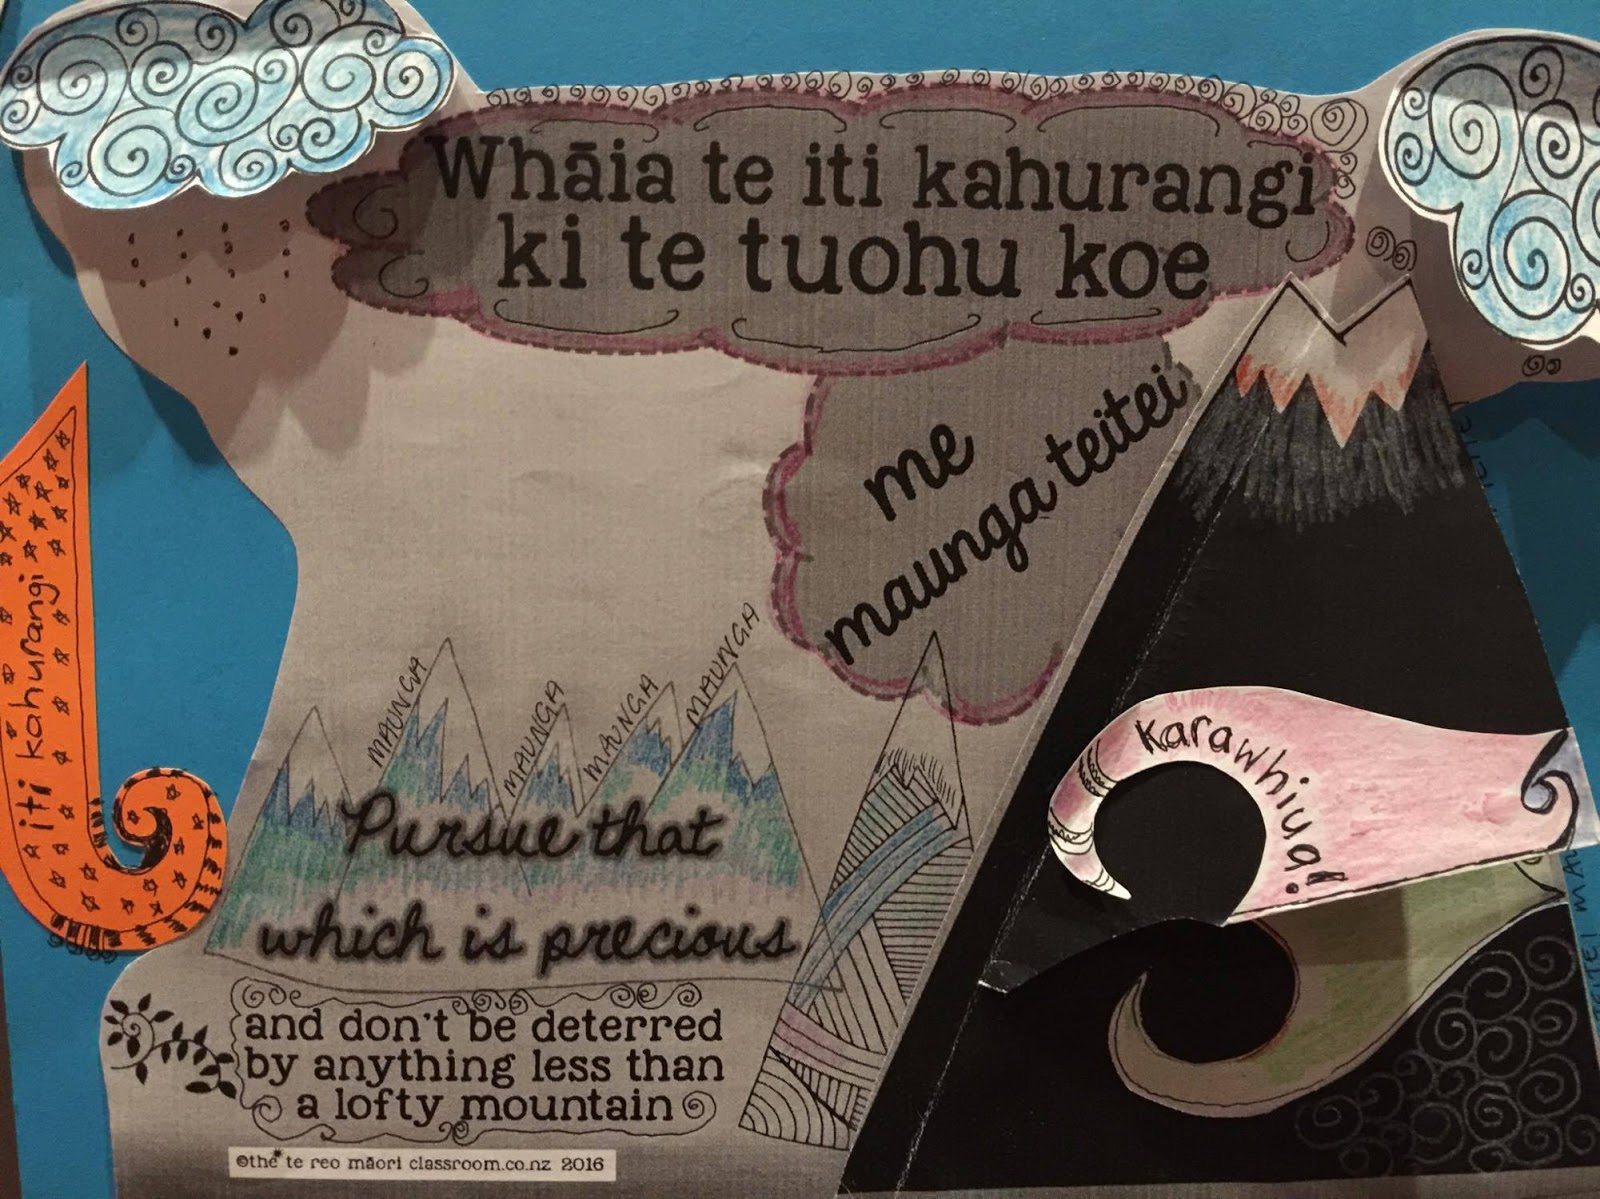 Whāia te iti kahurangi
ki te tuohu koe
me
maunga teitei
iti kahurangi
MAUNGA
MAUNGA
MAUNGA
MAUNGA
Karawhiua!
Pursue that
which is precious
and don't be deterred
by anything less than
a lofty mountain
©the te reo māori classroom.co.nz 2016